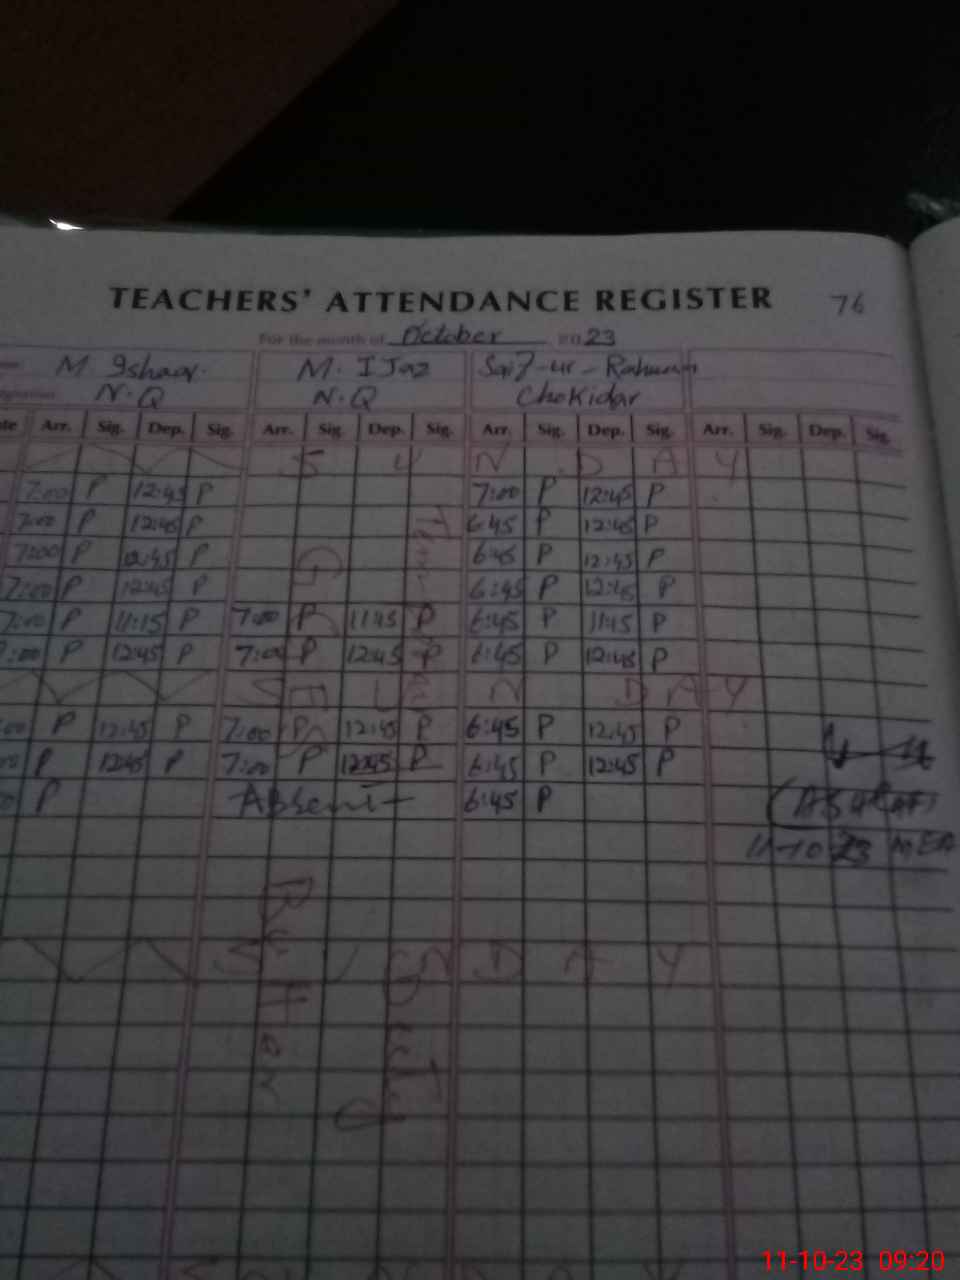 TEACHERS' ATTENDANCE REGISTER 76
For the month of October 2023
M M. IJaz Saif-ur-Rahman
N.Q N.Q Chokidar
Arr. Sig. Dep. Sig. Arr. Sig. Dep. Sig. Arr. Sig. Dep. Sig. Arr. Sig. Dep. Sig.
S U N D A Y
7:00 P 12:45 P 7:00 P 12:45 P
7:00 P 12:45 P 6:45 P 12:45 P
7:00 P 12:45 P 6:45 P 12:45 P
7:00 P 12:45 P 6:45 P 12:45 P
7:00 P 11:15 P 7:00 P 1145 P 6:45 P 11:15 P
:00 P 12:45 P 7:00 P 12:45 P 6:45 P 12:45 P
S U N D A Y
:00 P 12:45 P 7:00 P 12:45 P 6:45 P 12:45 P
P 12:45 P 7:00 P 12:45 P 6:45 P 12:45 P
P Absent 6:45 P
(ASHRAF)
11-10-23 MEA
S U N D A Y
Duty
11-10-23 09:20